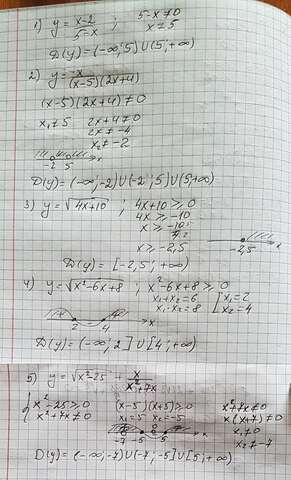 1) y = x-2/5-x ; 5-x≠0
x≠5
D(y) = (-∞; 5) ∪ (5; +∞)
2) y = -x/(x-5)(2x+4)
(x-5)(2x+4) ≠ 0
x₁≠5 2x+4≠0
2x ≠ -4
x₂≠-2
-2 5 x
D(y) = (-∞; -2) ∪ (-2; 5) ∪ (5; +∞)
3) y = √4x+10 ; 4x+10 ≥ 0
4x ≥ -10
x ≥ -10:4
x ≥ -2,5
-2,5 x
D(y) = [-2,5; +∞)
4) y = √x²-6x+8 ; x²-6x+8 ≥ 0
x₁+x₂=6 [x₁=2
x₁·x₂=8 x₂=4
2 4 x
D(y) = (-∞; 2] ∪ [4; +∞)
5) y = √x²-25 + x/x²+7x
{x²-25≥0 (x-5)(x+5)≥0 x²+7x≠0
x²+7x≠0 x₁=5 x₂=-5 x(x+7)≠0
x₁≠0
x₂≠-7
-7 -5 0 5 x
D(y) = (-∞; -7) ∪ (-7; -5] ∪ [5; +∞)